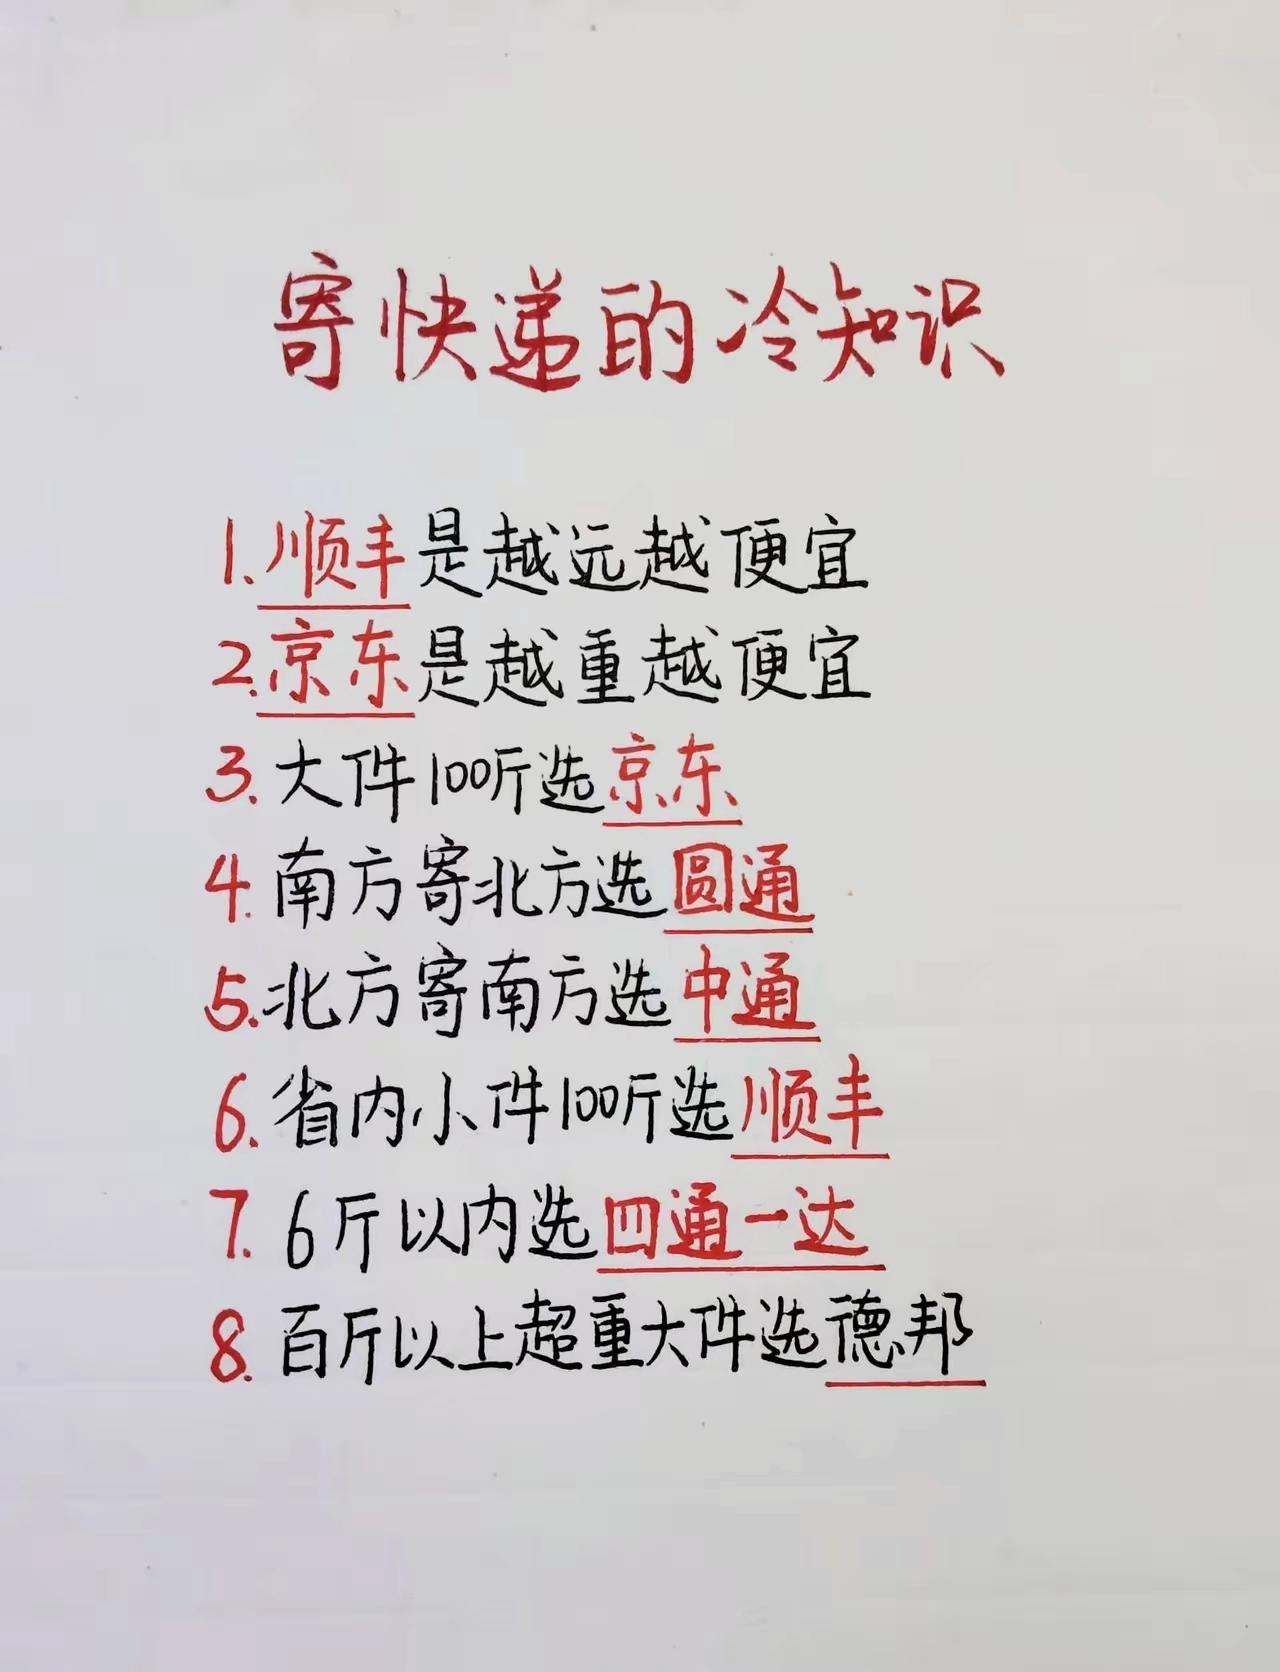 寄快递的冷知识
1.顺丰是越远越便宜
2.京东是越重越便宜
3.大件100斤选京东
4.南方寄北方选圆通
5.北方寄南方选中通
6.省内小件100斤选顺丰
7.6斤以内选四通一达
8.百斤以上超重大件选德邦